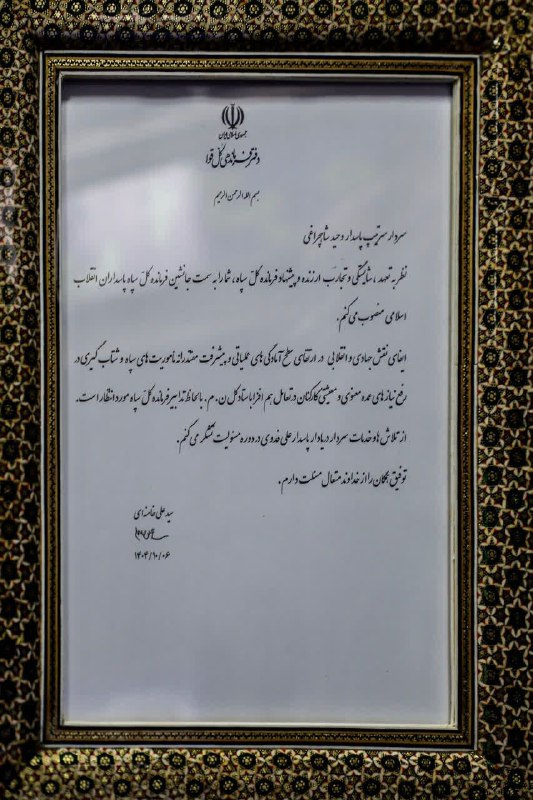 جمهوری اسلامی ایران
دفتر فرماندهی کل قوا
بسم الله الرحمن الرحیم
سردار سرتیپ پاسدار وحید شاهچراغی
نظر به تعهد، شایستگی و تجارب ارزنده و پیشنهاد فرمانده کل سپاه، شما را به سمت جانشین فرمانده کل سپاه پاسداران انقلاب
اسلامی منصوب می‌کنم.
ایفای نقش جهادی و انقلابی در ارتقای سطح آمادگی‌های عملیاتی و پیشرفت مقتدرانه مأموریت‌های سپاه و شتاب‌گیری در
رفع نیازهای عمده معنوی و معیشتی کارکنان در تعامل هم افزا با ستاد کل ن.م. با لحاظ تدابیر فرمانده کل سپاه مورد انتظار است.
از تلاش‌ها و خدمات سردار دریادار پاسدار علی فدوی در دوره مسئولیت تشکر می‌کنم.
توفیق همگان را از خداوند متعال مسئلت دارم.
سید علی خامنه‌ای
۱۴۰۴/۱۰/۰۶